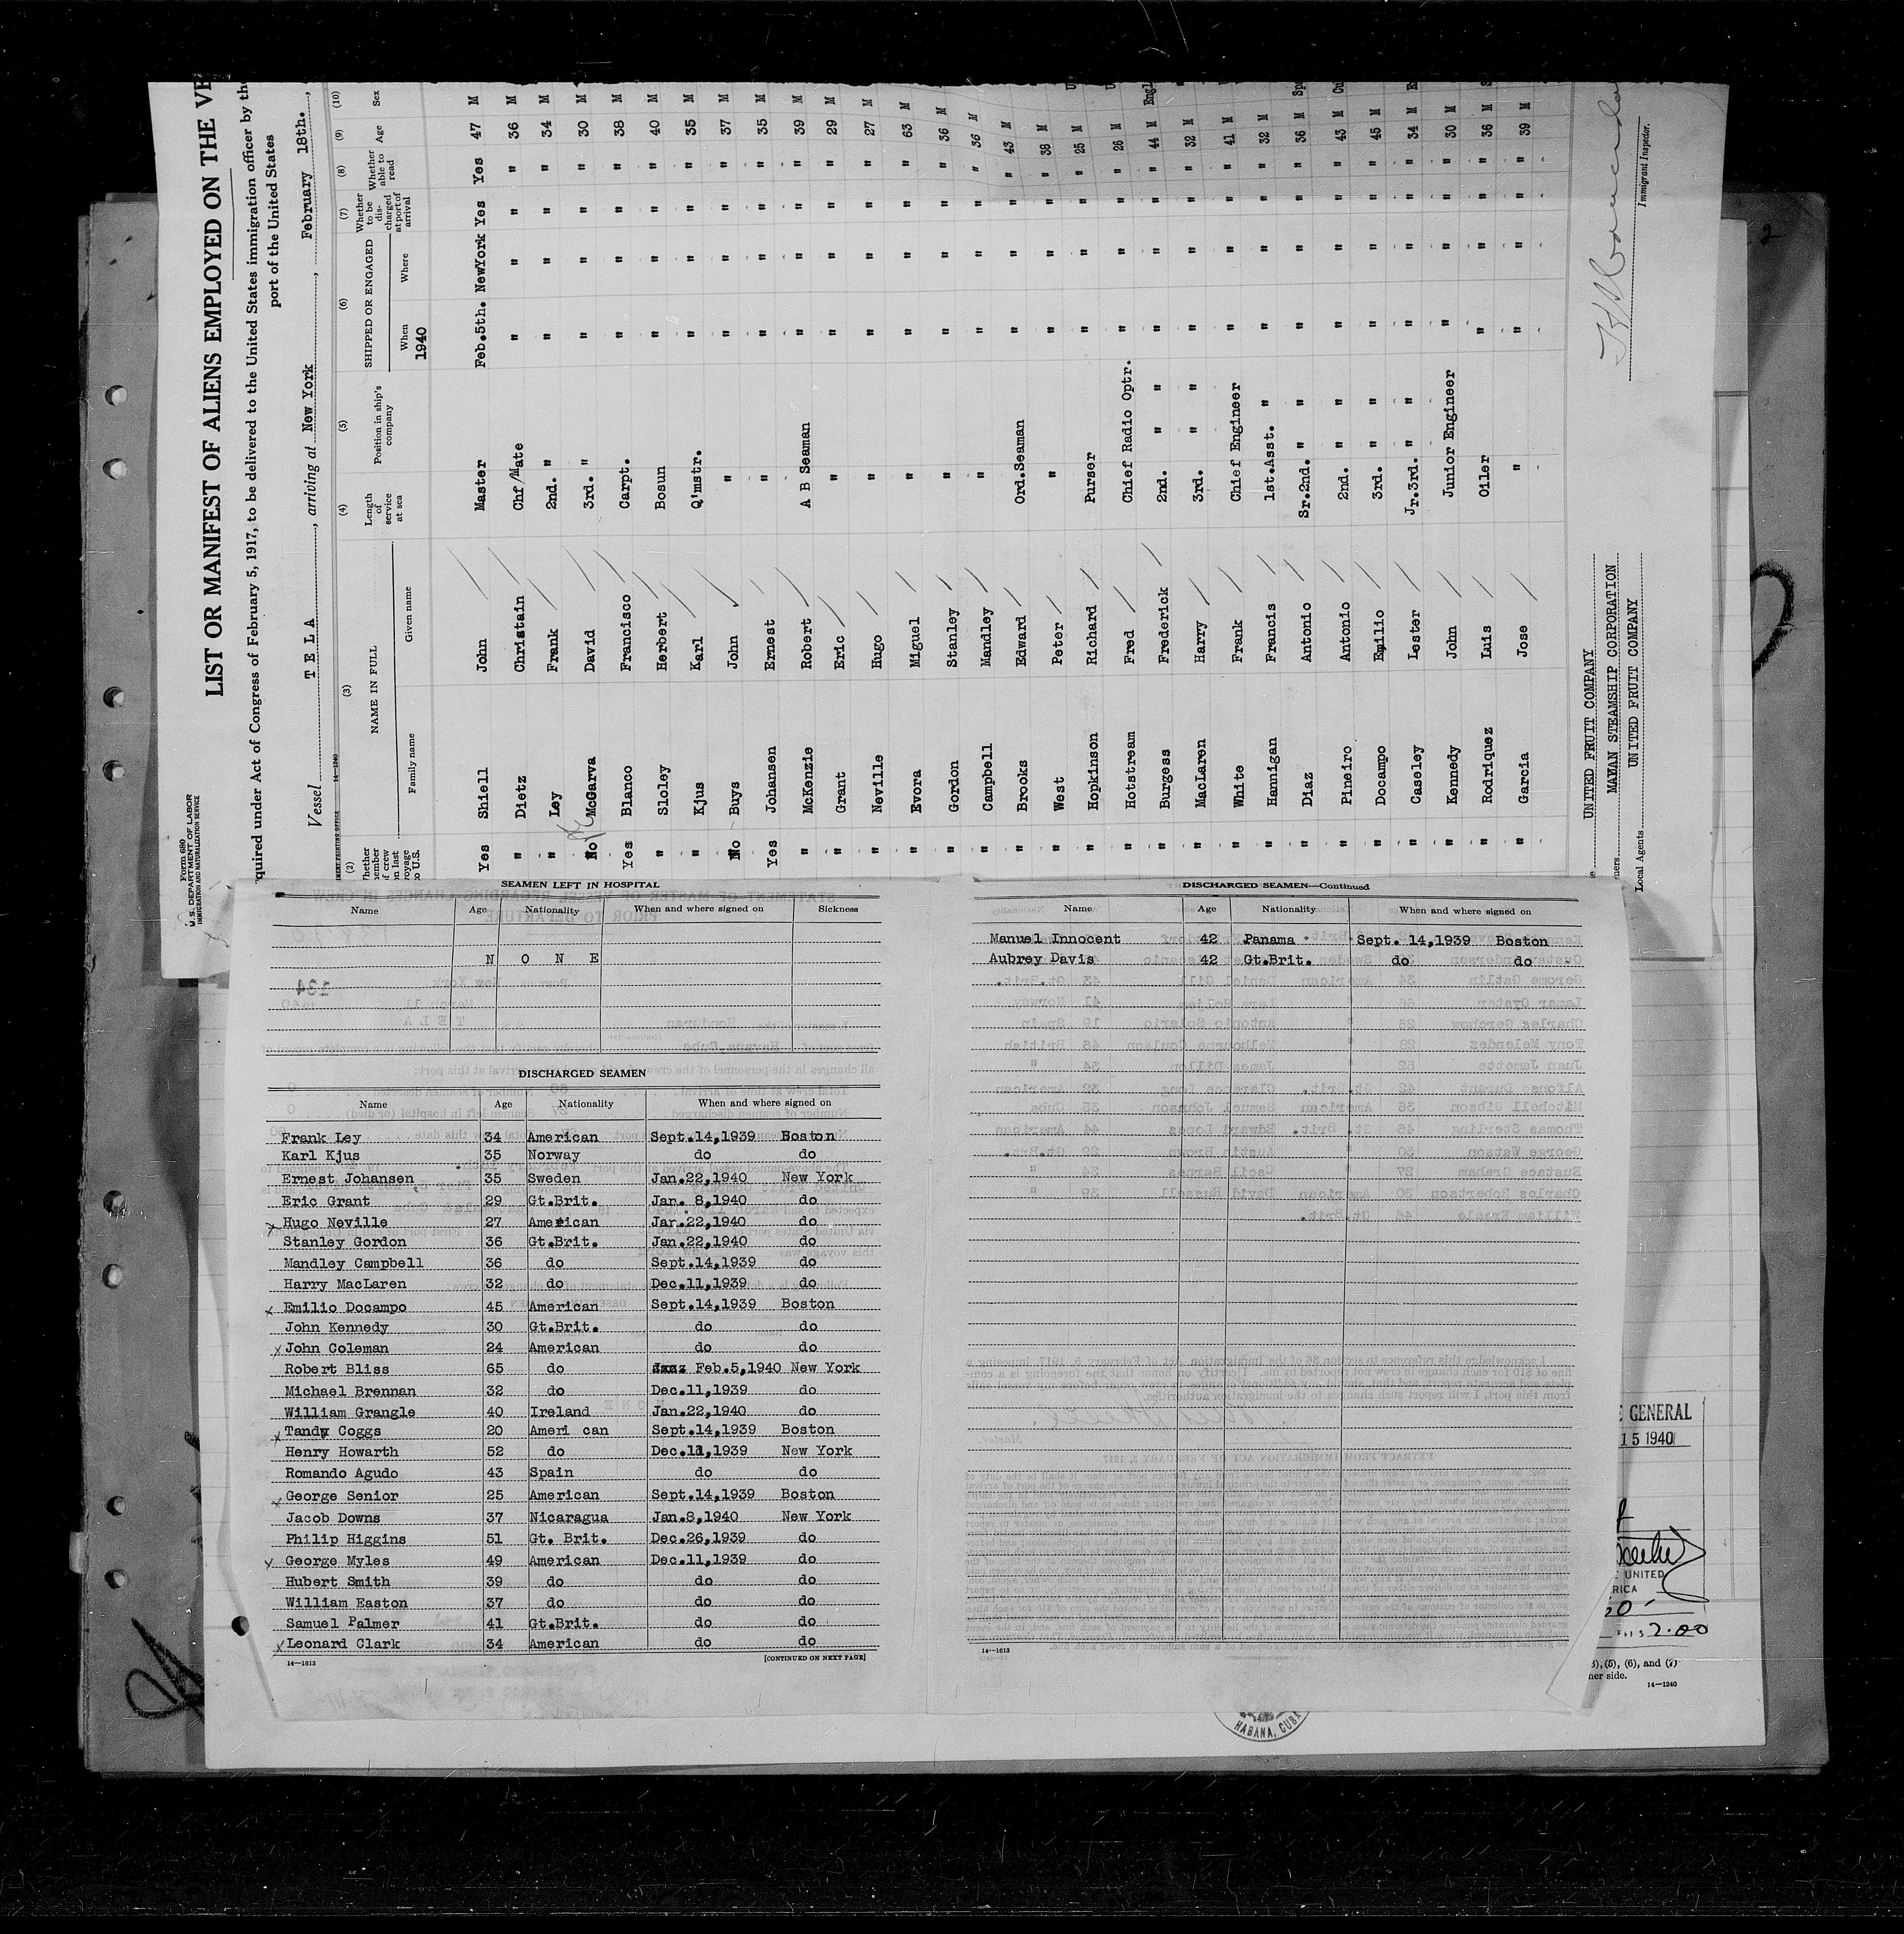 Form 680
U. S. DEPARTMENT OF LABOR
IMMIGRATION AND NATURALIZATION SERVICE
LIST OR MANIFEST OF ALIENS EMPLOYED ON THE VE
quired under Act of Congress of February 5, 1917, to be delivered to the United States immigration officer by the
port of the United States
Vessel T E L A, arriving at New York, February 18th.,
14—1240
(2) (3) (4) (5) (6) (7) (8) (9) (10)
NAME IN FULL Length of service at sea Position in ship's company SHIPPED OR ENGAGED Whether to be discharged at port of arrival Whether able to read Age Sex
Family name Given name When Where
1940
Yes Shiell John Master Feb.5th. NewYork Yes Yes 47 M
" Dietz Christain Chf/Mate " " " " 36 M
" Ley Frank 2nd. " " " " " 34 M
No McGarva David 3rd. " " " " " 30 M
Yes Blanco Francisco Carpt. " " " " 38 M
" Sloley Herbert Bosun " " " " 40 M
" Kjus Karl Q'mstr. " " " " 35 M
No Buys John " " " " " 37 M
Yes Johansen Ernest " " " " " 35 M
" McKenzie Robert A B Seaman " " " " 39 M
" Grant Eric " " " " " 29 M
" Neville Hugo " " " " " 27 M
" Evora Miguel " " " " " 63 M
" Gordon Stanley " " " " " 36 M
" Campbell Mandley " " " " " 36 M
" Brooks Edward Ord.Seaman " " " " 43 M
" West Peter " " " " " 38 M
" Hopkinson Richard Purser " " " " 25 M
" Hotstream Fred Chief Radio Optr. " " " " 26 M
" Burgess Frederick 2nd. " " " " " " 44 M Engl
" MacLaren Harry 3rd. " " " " " " 32 M
" White Frank Chief Engineer " " " " 41 M
" Hannigan Francis 1st.Asst. " " " " " 32 M
" Diaz Antonio Sr.2nd. " " " " " " 36 M Sp
" Pineiro Antonio 2nd. " " " " " " 43 M Cu
" Docampo Emilio 3rd. " " " " " " 45 M
" Caseley Lester Jr.3rd. " " " " " " 34 M E
" Kennedy John Junior Engineer " " " " 30 M
" Rodriquez Luis Oiler " " " " 36 M S
" Garcia Jose " " " " " 39 M
UNITED FRUIT COMPANY
MAMAN STEAMSHIP CORPORATION
Local Agents UNITED FRUIT COMPANY
Immigrant Inspector.
SEAMEN LEFT IN HOSPITAL
Name Age Nationality When and where signed on Sickness
N O N E
DISCHARGED SEAMEN
Name Age Nationality When and where signed on
Frank Ley 34 American Sept.14,1939 Boston
Karl Kjus 35 Norway do do
Ernest Johansen 35 Sweden Jan.22,1940 New York
Eric Grant 29 Gt.Brit. Jan. 8,1940 do
x Hugo Neville 27 American Jan.22,1940 do
Stanley Gordon 36 Gt.Brit. Jan.22,1940 do
Mandley Campbell 36 do Sept.14,1939 do
Harry MacLaren 32 do Dec.11,1939 do
x Emilio Docampo 45 American Sept.14,1939 Boston
John Kennedy 30 Gt.Brit. do do
x John Coleman 24 American do do
Robert Bliss 65 do Feb.5,1940 New York
Michael Brennan 32 do Dec.11,1939 do
William Grangle 40 Ireland Jan.22,1940 do
x Tandy Coggs 20 Ameri can Sept.14,1939 Boston
Henry Howarth 52 do Dec.11,1939 New York
Romando Agudo 43 Spain do do
x George Senior 25 American Sept.14,1939 Boston
Jacob Downs 37 Nicaragua Jan.8,1940 New York
Philip Higgins 51 Gt. Brit. Dec.26,1939 do
x George Myles 49 American Dec.11,1939 do
Hubert Smith 39 do do do
William Easton 37 do do do
Samuel Palmer 41 Gt.Brit. do do
x Leonard Clark 34 American do do
14—1613 [CONTINUED ON NEXT PAGE]
DISCHARGED SEAMEN—Continued
Name Age Nationality When and where signed on
Manuel Innocent 42 Panama Sept. 14,1939 Boston
Aubrey Davis 42 Gt.Brit. do do
14—1613
2
GENERAL
15 1940
UNITED
RICA
2.00
(5), (6), and (7)
her side.
14—1240
HABANA, CUBA